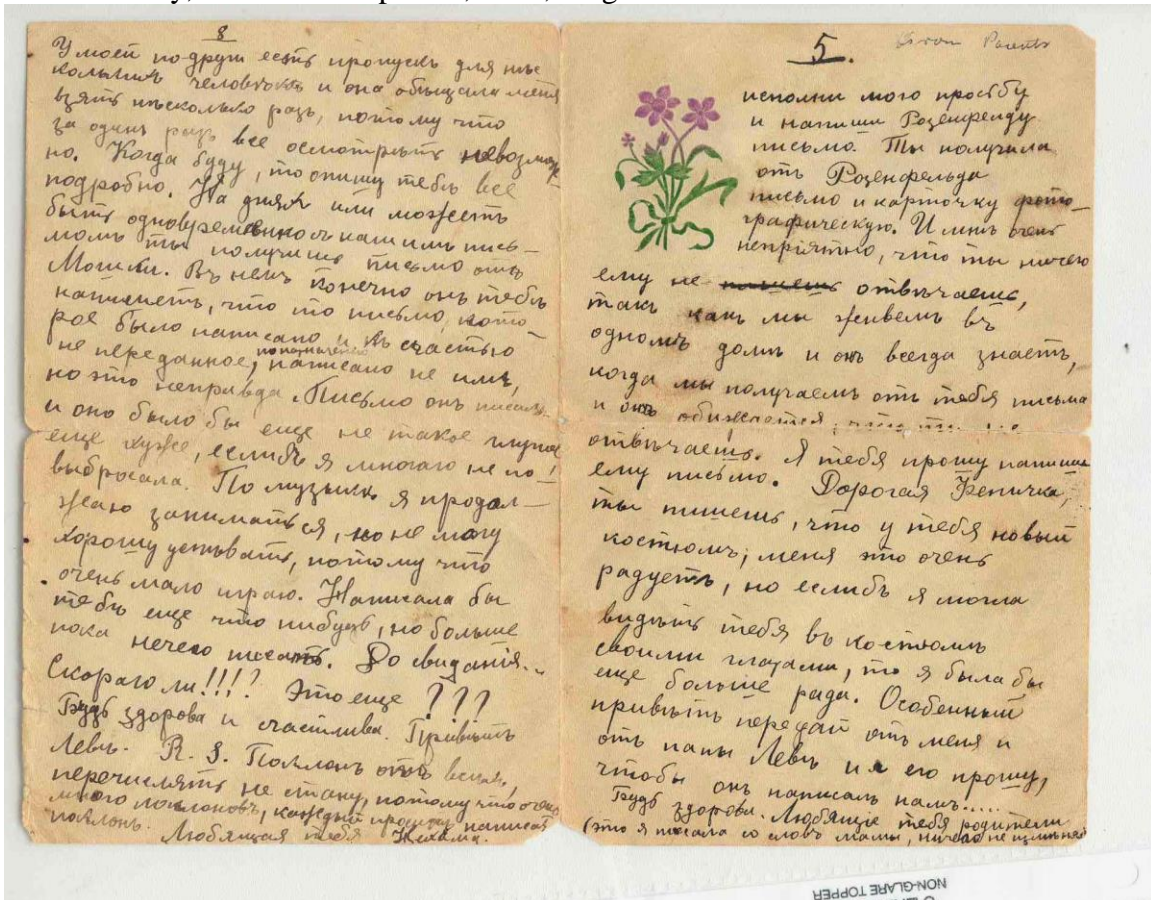 8
У моей подруги есть пропускъ для нѣс
кольких человѣкъ и она обѣщала меня
взять нѣсколько разъ, потому что
за одинъ разъ все осмотрѣть невозмож
но. Когда буду, то опишу тебѣ все
подробно. На дняхъ или можетъ
быть одновременно съ нашимъ пись-
момъ ты получишь письмо отъ
Въ немъ конечно онъ тебѣ
напишетъ, что то письмо, кото-
рое было написано и къ счастью
не переданное, написано не имъ,
но это неправда. Письмо онъ писалъ
и оно было бы еще не такое глупое
еще хуже, еслибъ я многаго не по!
выбросала. По музыкѣ я продол-
жаю заниматься, но не могу
хорошу успѣвать, потому что
очень мало играю. Написала бы
тебѣ еще что нибудь, но больше
пока нечего писать. До свиданія..
Скораго ли!!!? Это еще ???
Будь здорова и счастлива. Привѣтъ
Левѣ. R. S. Поклонъ отъ всѣхъ,
перечислять не стану, потому что очень
много поклоновъ, каждый просит написать
поклонъ. Любящая тебя Нехама.
5.
Parents
исполни мою просьбу
и напиши Розенфельду
письмо. Ты получила
отъ Розенфельда
письмо и карточку фото-
графическую. И мнѣ очень
непріятно, что ты ничего
ему не отвѣчаешь,
такъ какъ мы живемъ въ
одномъ домѣ и онъ всегда знаетъ,
когда мы получаемъ отъ тебя письма
и онъ обижается, что ты не
отвѣчаешь. Я тебя прошу напиши
ему письмо. Дорогая Феничка,
ты пишешь, что у тебя новый
костюмъ; меня это очень
радуетъ, но еслибъ я могла
видѣть тебя въ костюмѣ
своими глазами, то я была бы
еще больше рада. Особенный
привѣтъ передай отъ меня и
отъ папы Левѣ и его прошу,
чтобы онъ написалъ намъ.....
Будь здорова. Любящіе тебя родители
(это я писала со словъ мамы, ничего не измѣняя
NON-GLARE TOPPER